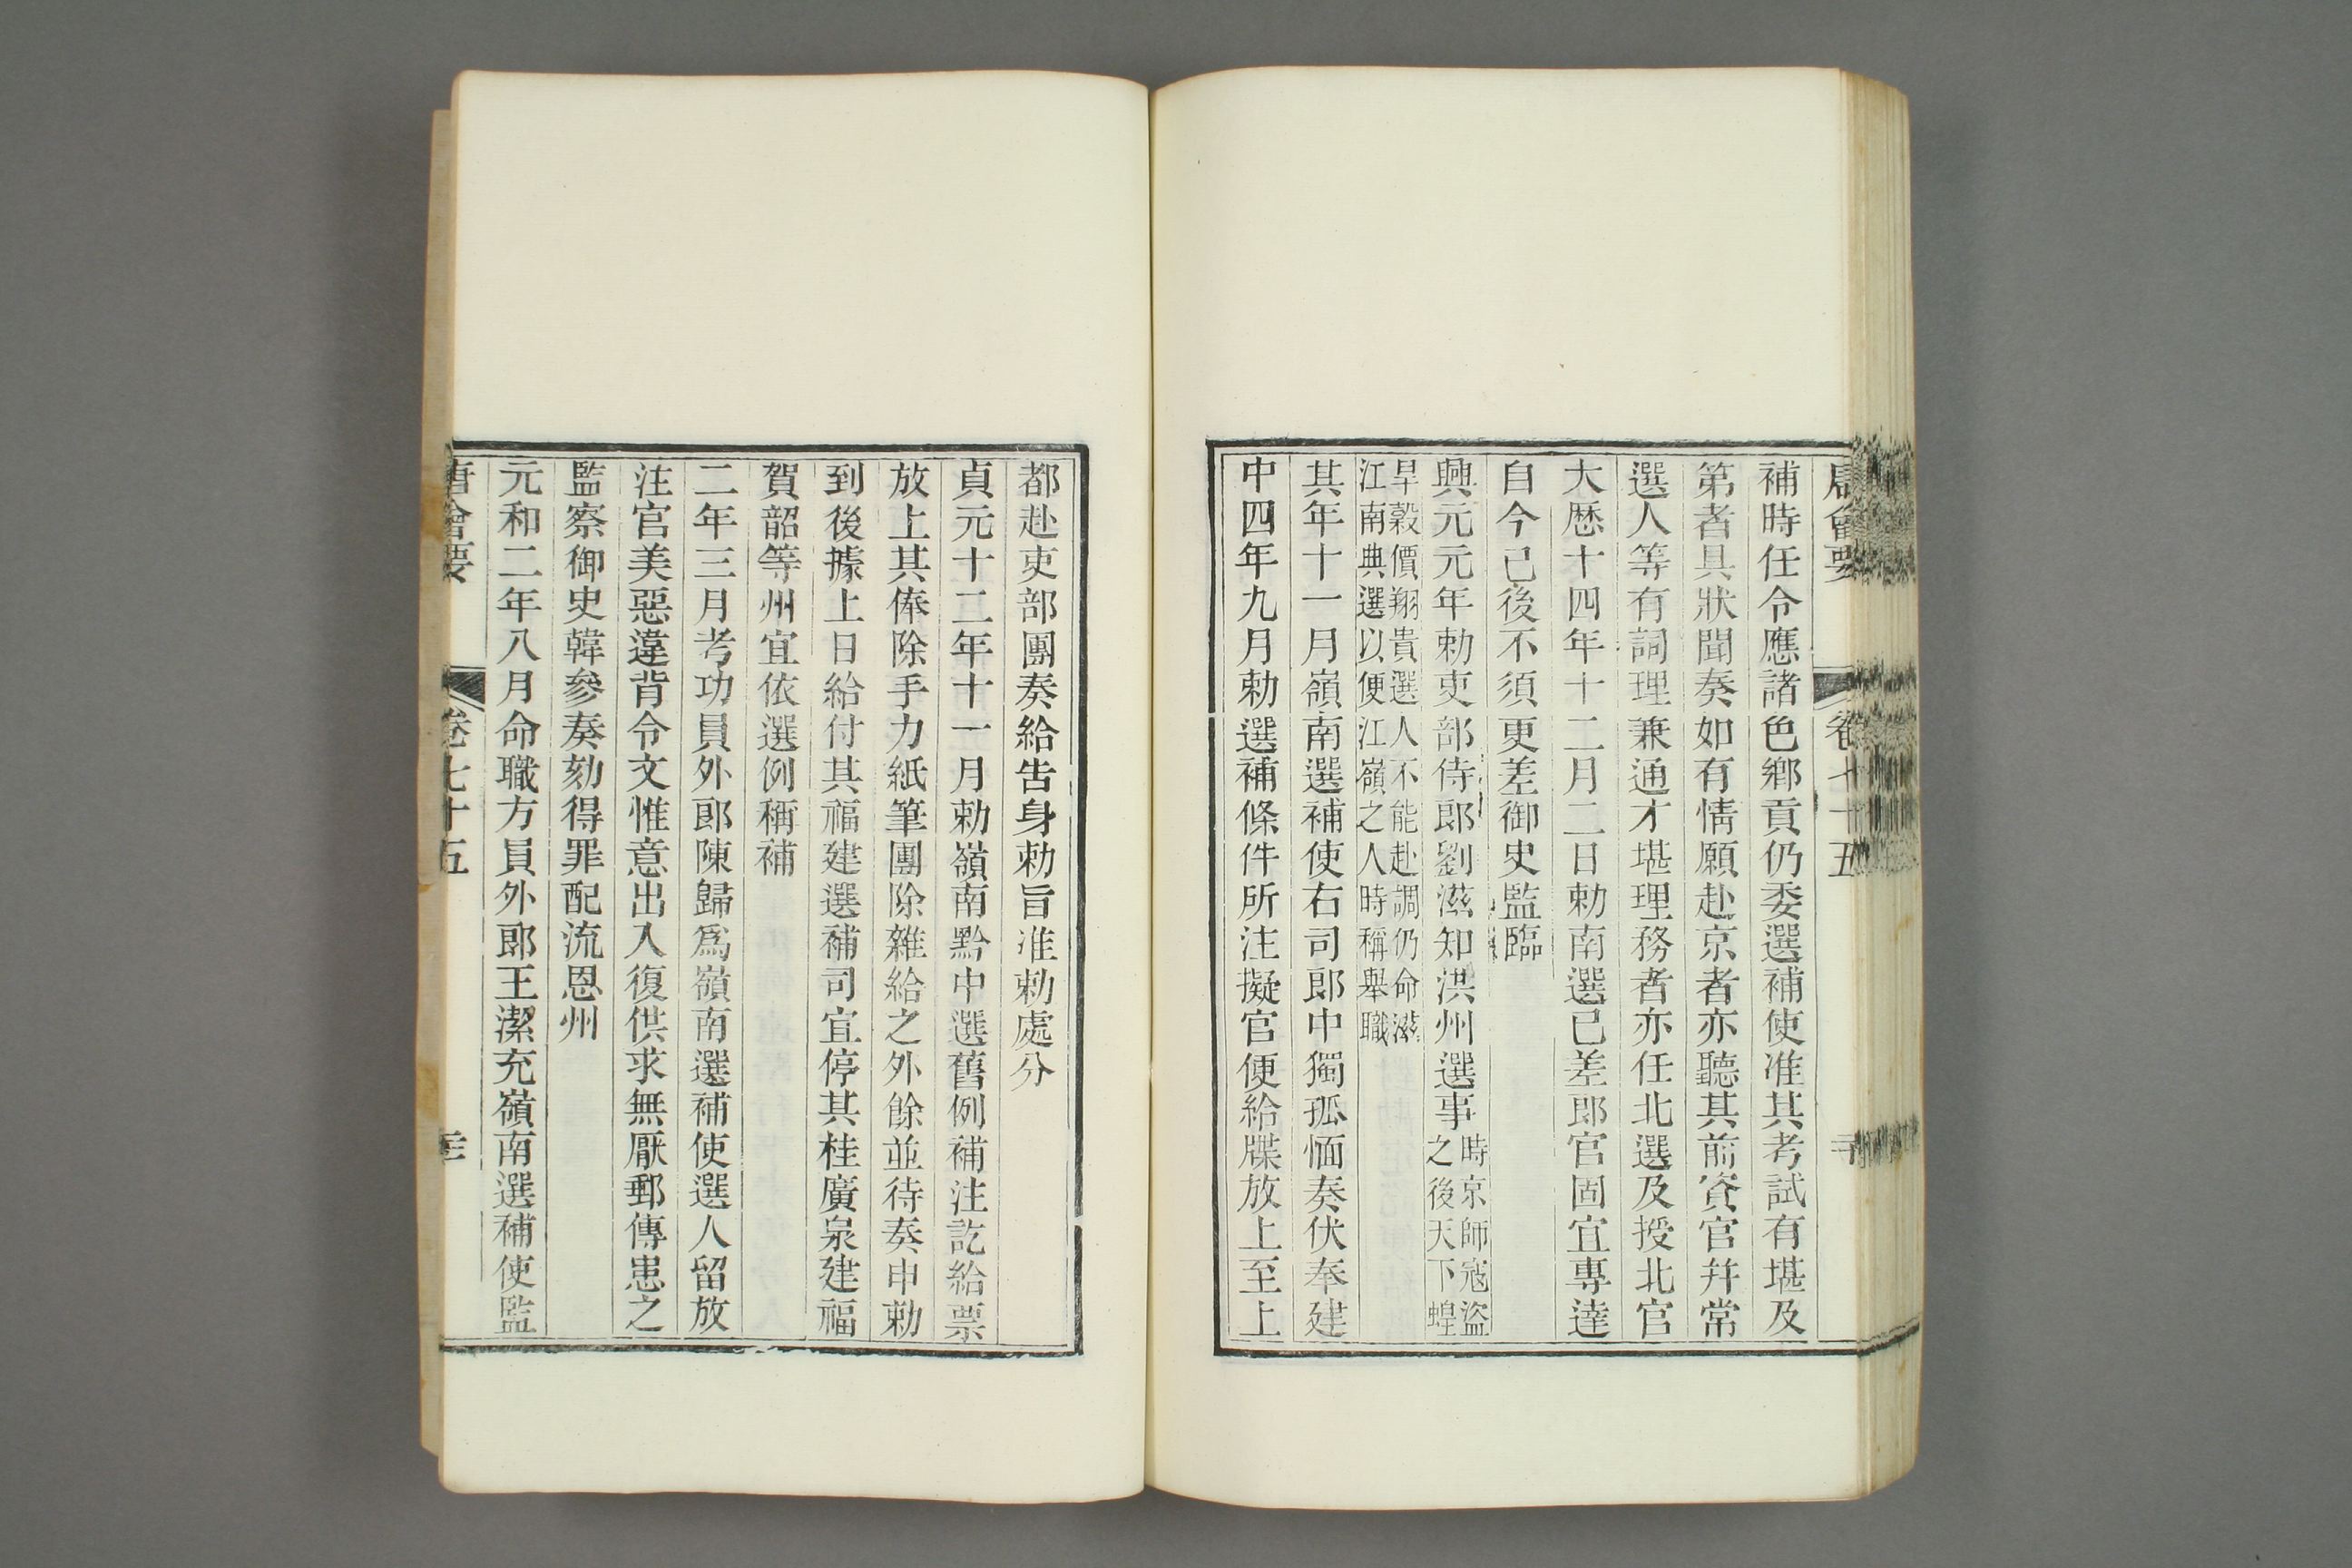 唐會要 卷七十五
補時任令應諸色鄉貢仍委選補使准其考試有堪及
第者具狀聞奏如有情願赴京者亦聽其前資官幷常
選人等有詞理兼通才堪理務者亦任北選及授北官
大厯十四年十二月二日勅南選已差郎官固宜專達
自今已後不須更差御史監臨
興元元年勅吏部侍郎劉滋知洪州選事時京師寇盜之後天下蝗
旱穀價翔貴選人不能赴調仍命滋江南典選以便江嶺之人時稱舉職
其年十一月嶺南選補使右司郎中獨孤愐奏伏奉建
中四年九月勅選補條件所注擬官便給牒放上至上
都赴吏部團奏給告身勅旨准勅處分
貞元十二年十一月勅嶺南黔中選舊例補注訖給票
放上其俸除手力紙筆團除雜給之外餘並待奏申勅
到後據上日給付其福建選補司宜停其桂廣泉建福
賀韶等州宜依選例稱補
二年三月考功員外郎陳歸爲嶺南選補使選人留放
注官美惡違背令文惟意出入復供求無厭郵傳患之
監察御史韓參奏劾得罪配流恩州
元和二年八月命職方員外郎王潔充嶺南選補使監
唐會要 卷七十五